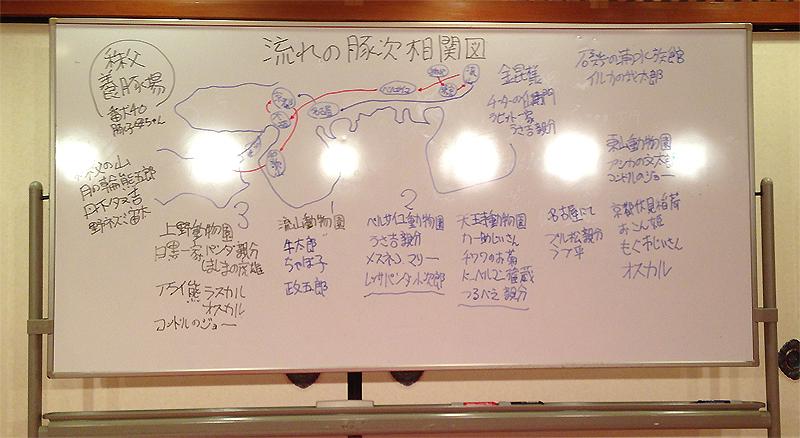 流れの豚次相関図
秩父
養豚場
番犬チロ
豚子母ちゃん
の山
月の輪熊五郎
野ネズミ笛太
京都
大阪
名古屋
金昆様
ラビット一家
うさ吉親分
の浦水族館
イルカの代太郎
東山動物園
アシカの文太
コンドルのジョー
3
1
2
上野動物園
白黒一家 パンダ親分
アライ熊 ラスカル
オスカル
コンドルのジョー
流山動物園
牛太郎
ちゃぼ子
政五郎
ベルサイユ動物園
うさ吉親分
メスネコ マリー
レッサパンダ小次郎
天王寺動物園
かーめじいさん
チワワのお菊
ドーベルマン
つるべえ親分
名古屋にて
マル松親分
京都伏見稲荷
おこん姫
もぐ木じいさん
オスカル